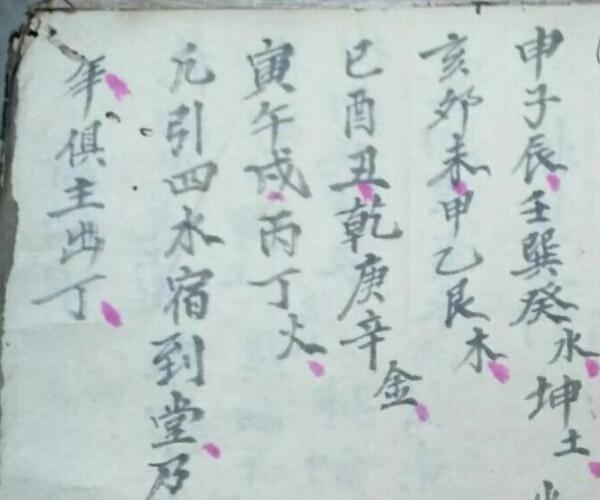 申子辰壬巽癸水坤土
亥卯未甲乙艮木
巳酉丑乾庚辛金
寅午戌丙丁火
凡引四水宿到堂乃
年俱主出丁